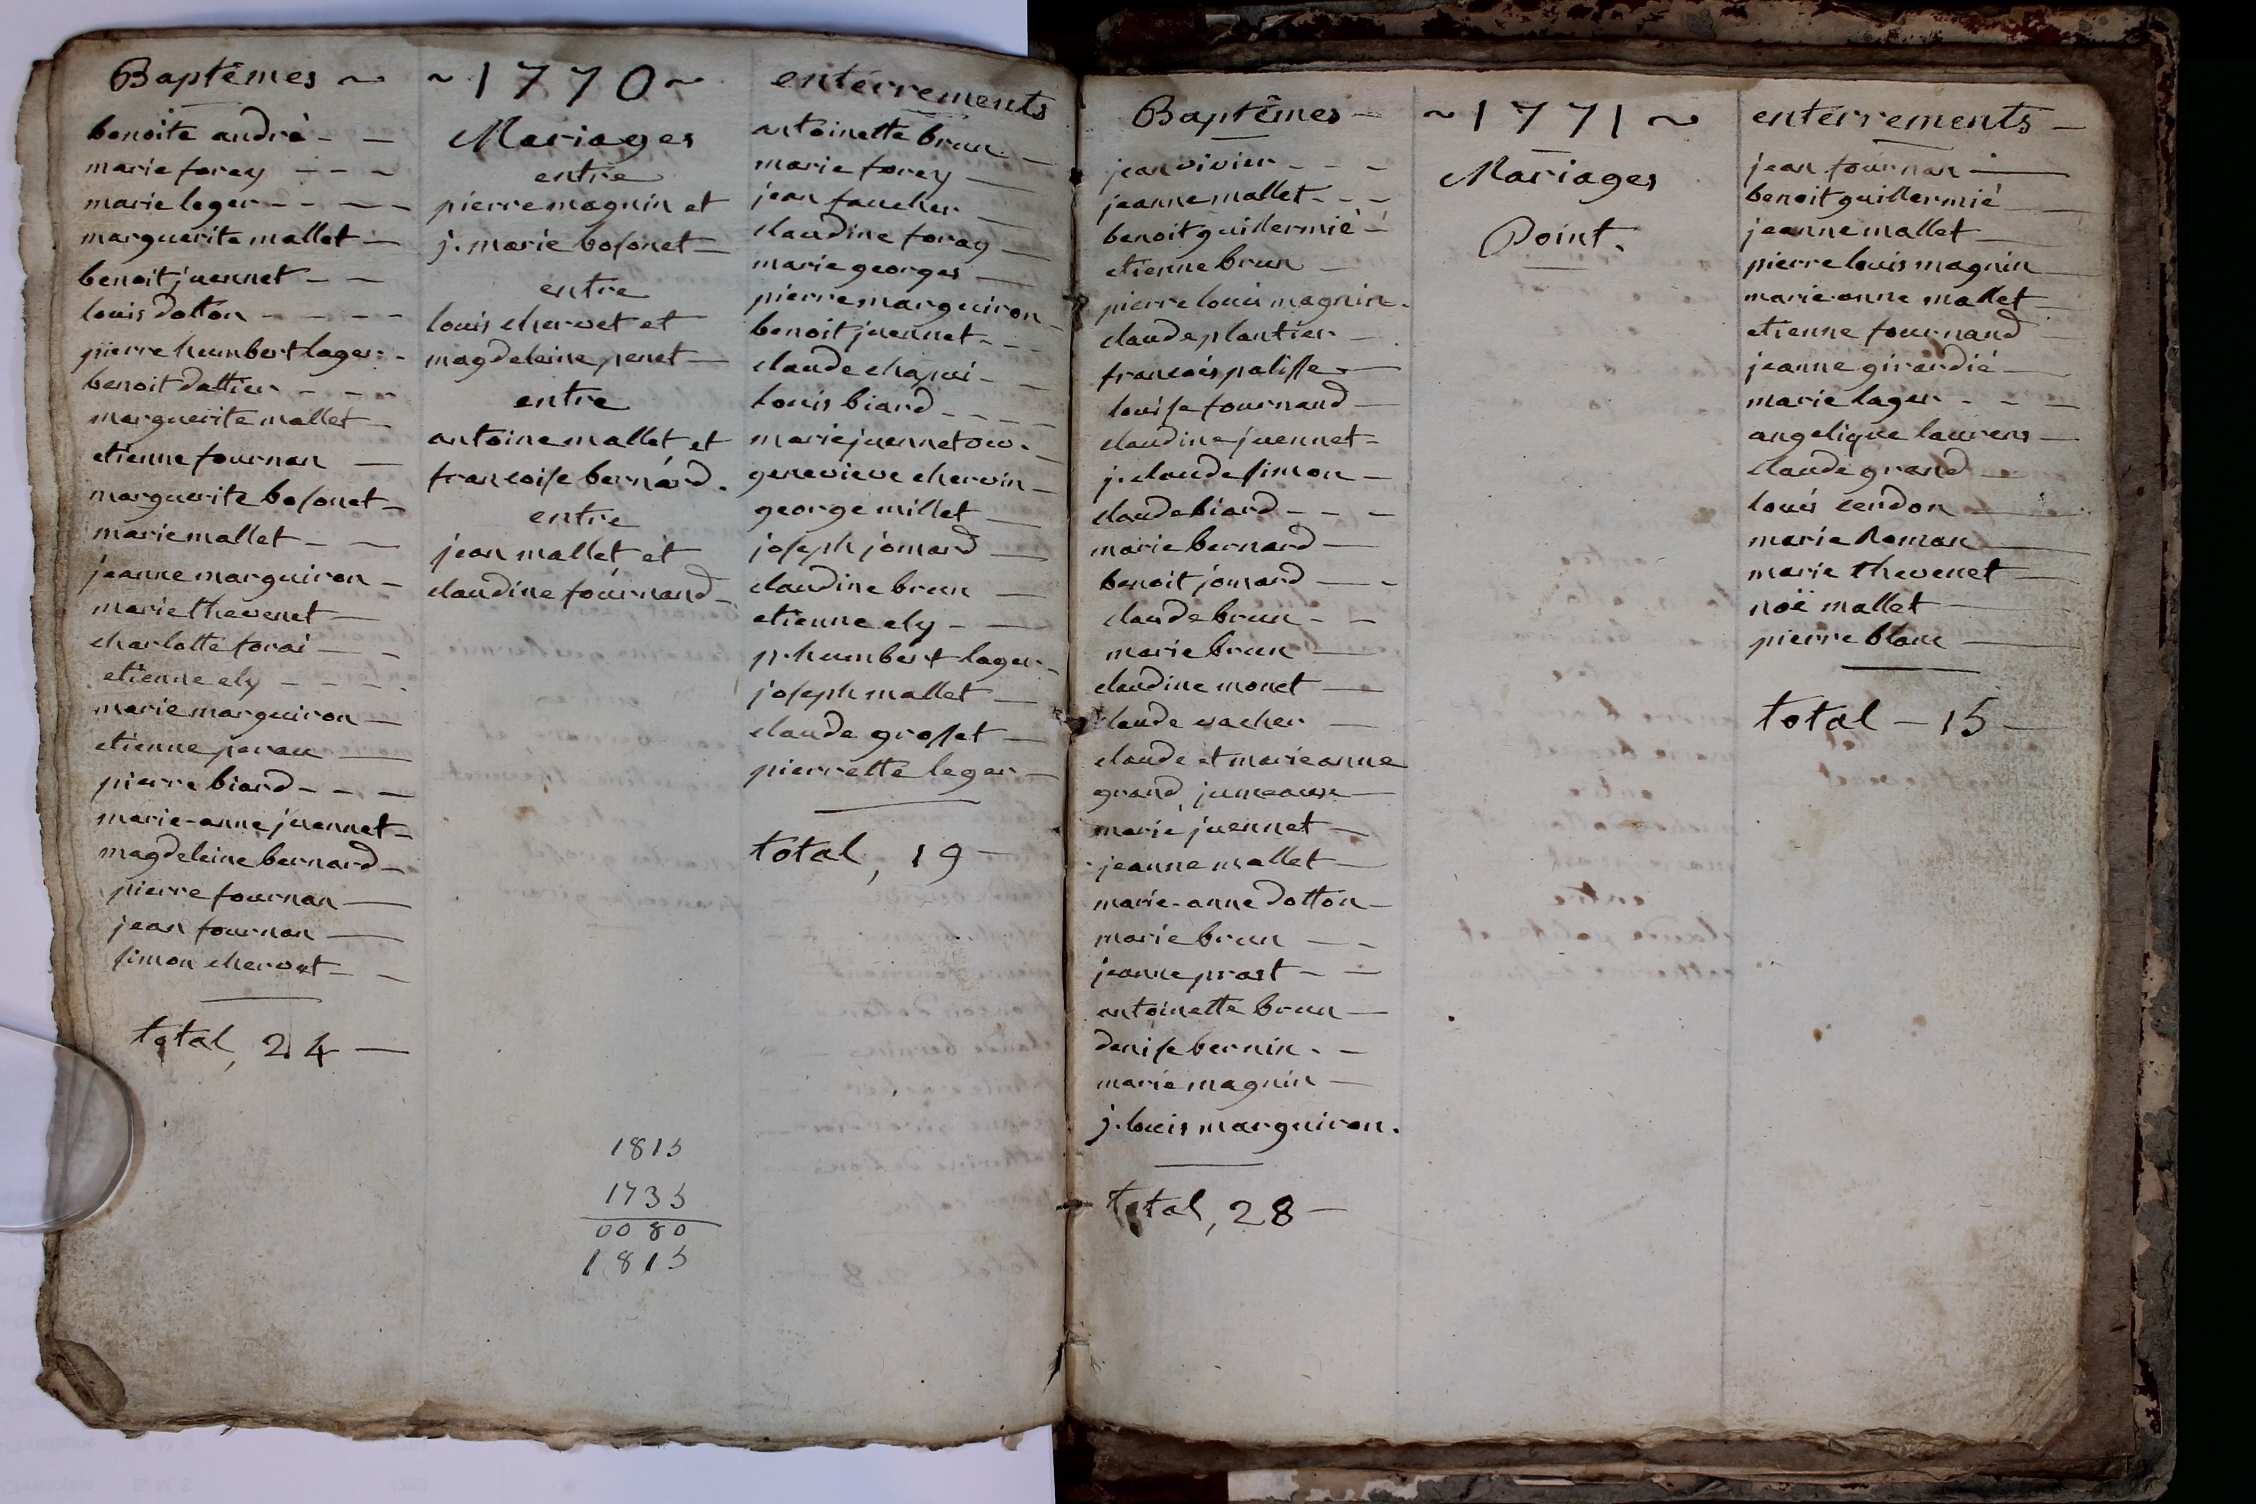 Baptêmes
benoite andrè
marie forey
marie leger
marguerite mallet
benoit juennet
louis dotton
pierre humbert lager
benoit dattier
marguerite mallet
etienne fournan
marguerite bosonet
marie mallet
jeanne marguiron
marie thevenet
charlotte forai
etienne ely
marie marguiron
etienne
pierre biard
marie-anne juennet
magdeleine bernard
pierre fournan
jean fournan
simon chervet
total, 24
~ 1770 ~
Mariages
entre
pierre magnin et
j. marie bosonet
entre
louis chervet et
magdeleine penet
entre
antoine mallet, et
francoise bernard.
entre
jean mallet et
claudine fournand
1815
1735
0080
1815
enterrements
antoinette brun
marie forey
jean faucher
claudine foray
marie georges
pierre marguiron
benoit juennet
claude chapui
louis biard
marie juennet
genevieve chervin
george millet
joseph jomard
claudine brun
etienne ely
p. humbert lager
joseph mallet
claude grosset
pierrette leger
total, 19
Baptêmes
jean vivier
jeanne mallet
benoit guillermié
etienne brun
pierre louis magnin.
claude plantier
francois palisse
louise fournand
claudine juennet
j. claude simon
claude biard
marie bernard
benoit jomard
claude brun
marie brun
claudine monet
claude vacher
claude et marie anne
grand, jumeaux
marie juennet
jeanne mallet
marie-anne dotton
marie brun
jeanne prost
antoinette brun
denise bernin
marie magnin
j. louis marguiron.
total, 28
~ 1771 ~
Mariages
Point.
enterrements
jean fournan
benoit guillermié
jeanne mallet
pierre louis magnin
marie-anne mallet
etienne fournand
jeanne girardié
marie lager
angelique laurens
claude grand
louis cendon
marie Roman
marie thevenet
noë mallet
pierre blanc
total - 15